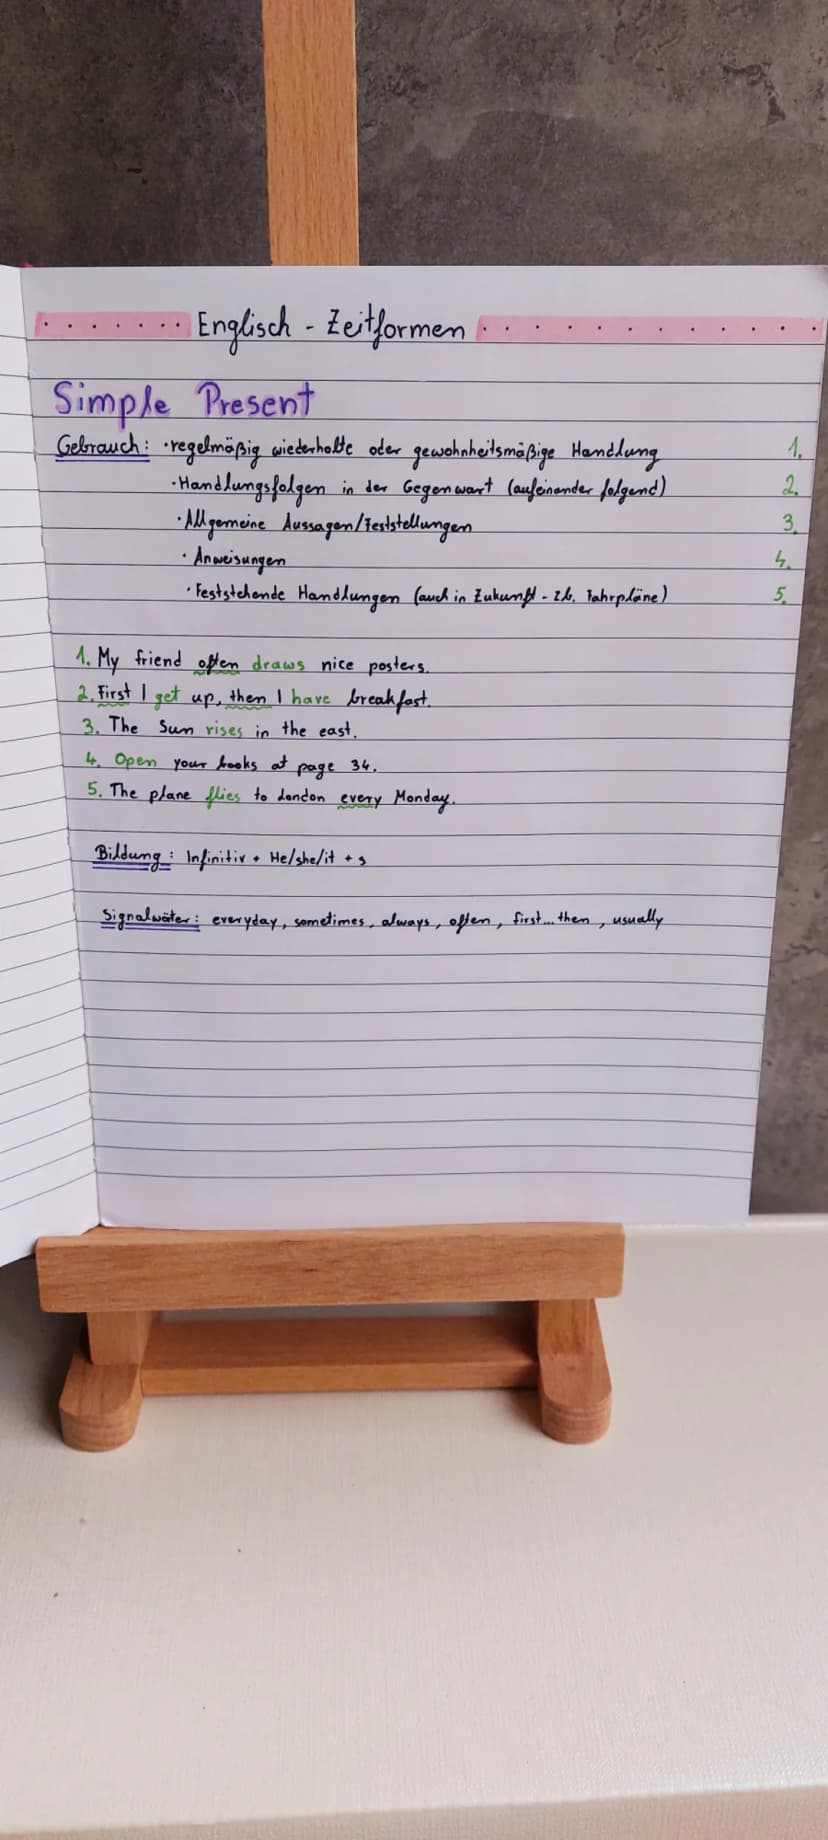 Englisch - Zeitformen
Simple Present
Gebrauch: · regelmäßig wiederholte oder gewohnheitsmäßige Handlung 1.
· Handlungsfolgen in der Gegenwart (aufeinander folgend) 2.
· Allgemeine Aussagen/Feststellungen 3.
· Anweisungen 4.
· Feststehende Handlungen (auch in Zukunft - z.b. Fahrpläne) 5.
1. My friend often draws nice posters.
2. First I get up, then I have breakfast.
3. The Sun rises in the east.
4. Open your books at page 34.
5. The plane flies to London every Monday.
Bildung: Infinitiv + He/she/it + s
Signalwöter: everyday, sometimes, always, often, first...then, usually